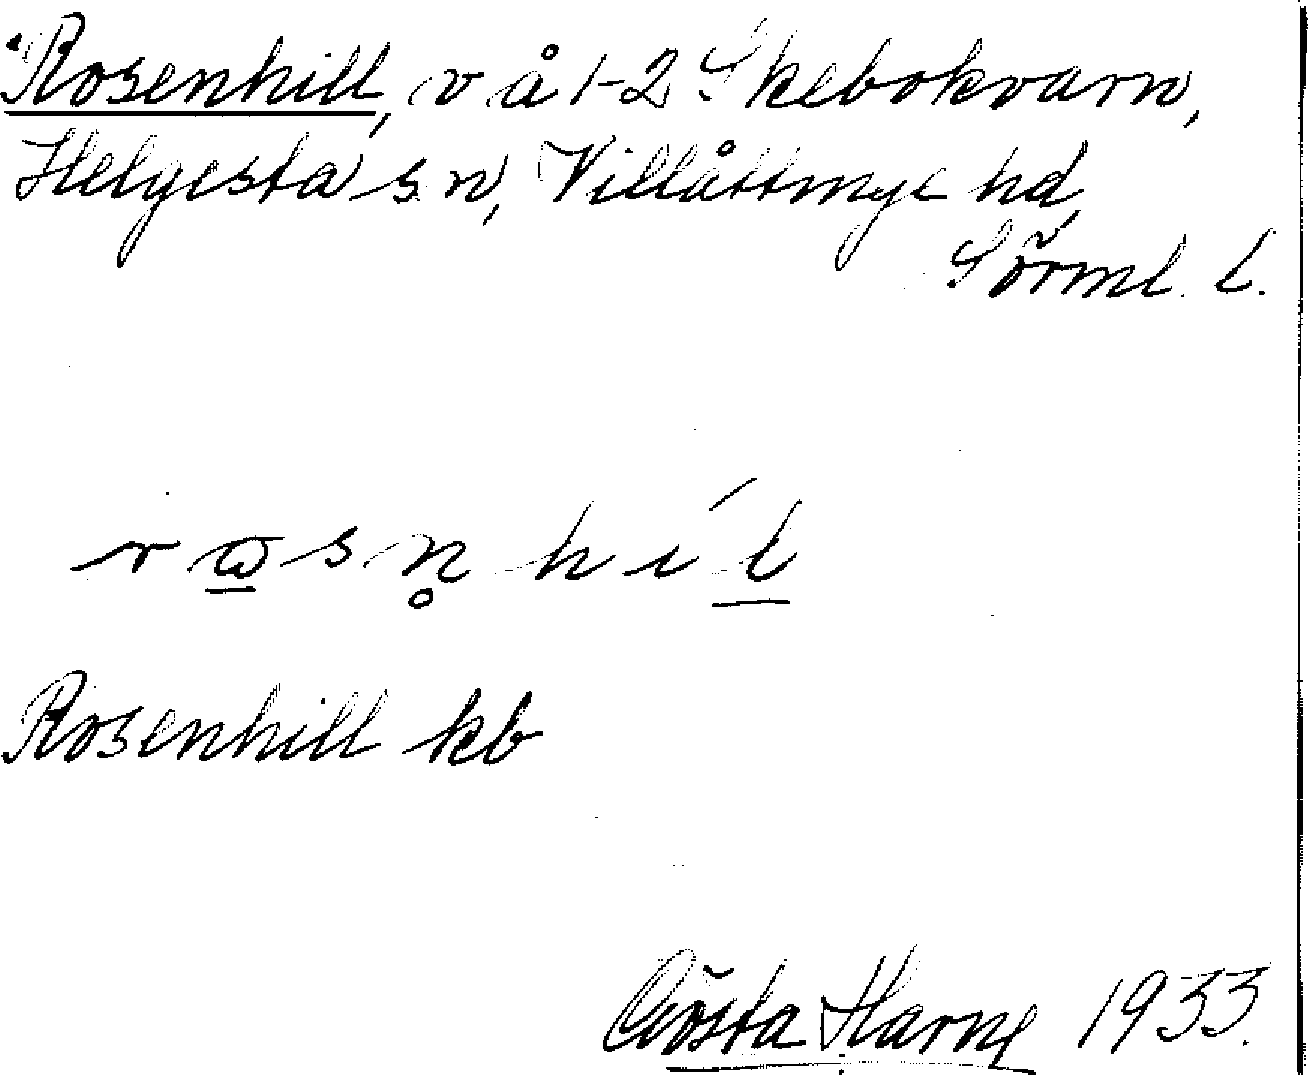 Rosenhill, v å 1-2 Skebokvarn,
Helgesta sn, Villåttinge hd,
Sörml. l.
rωsn̥ híl
Rosenhill kb
Gösta Harne 1933.